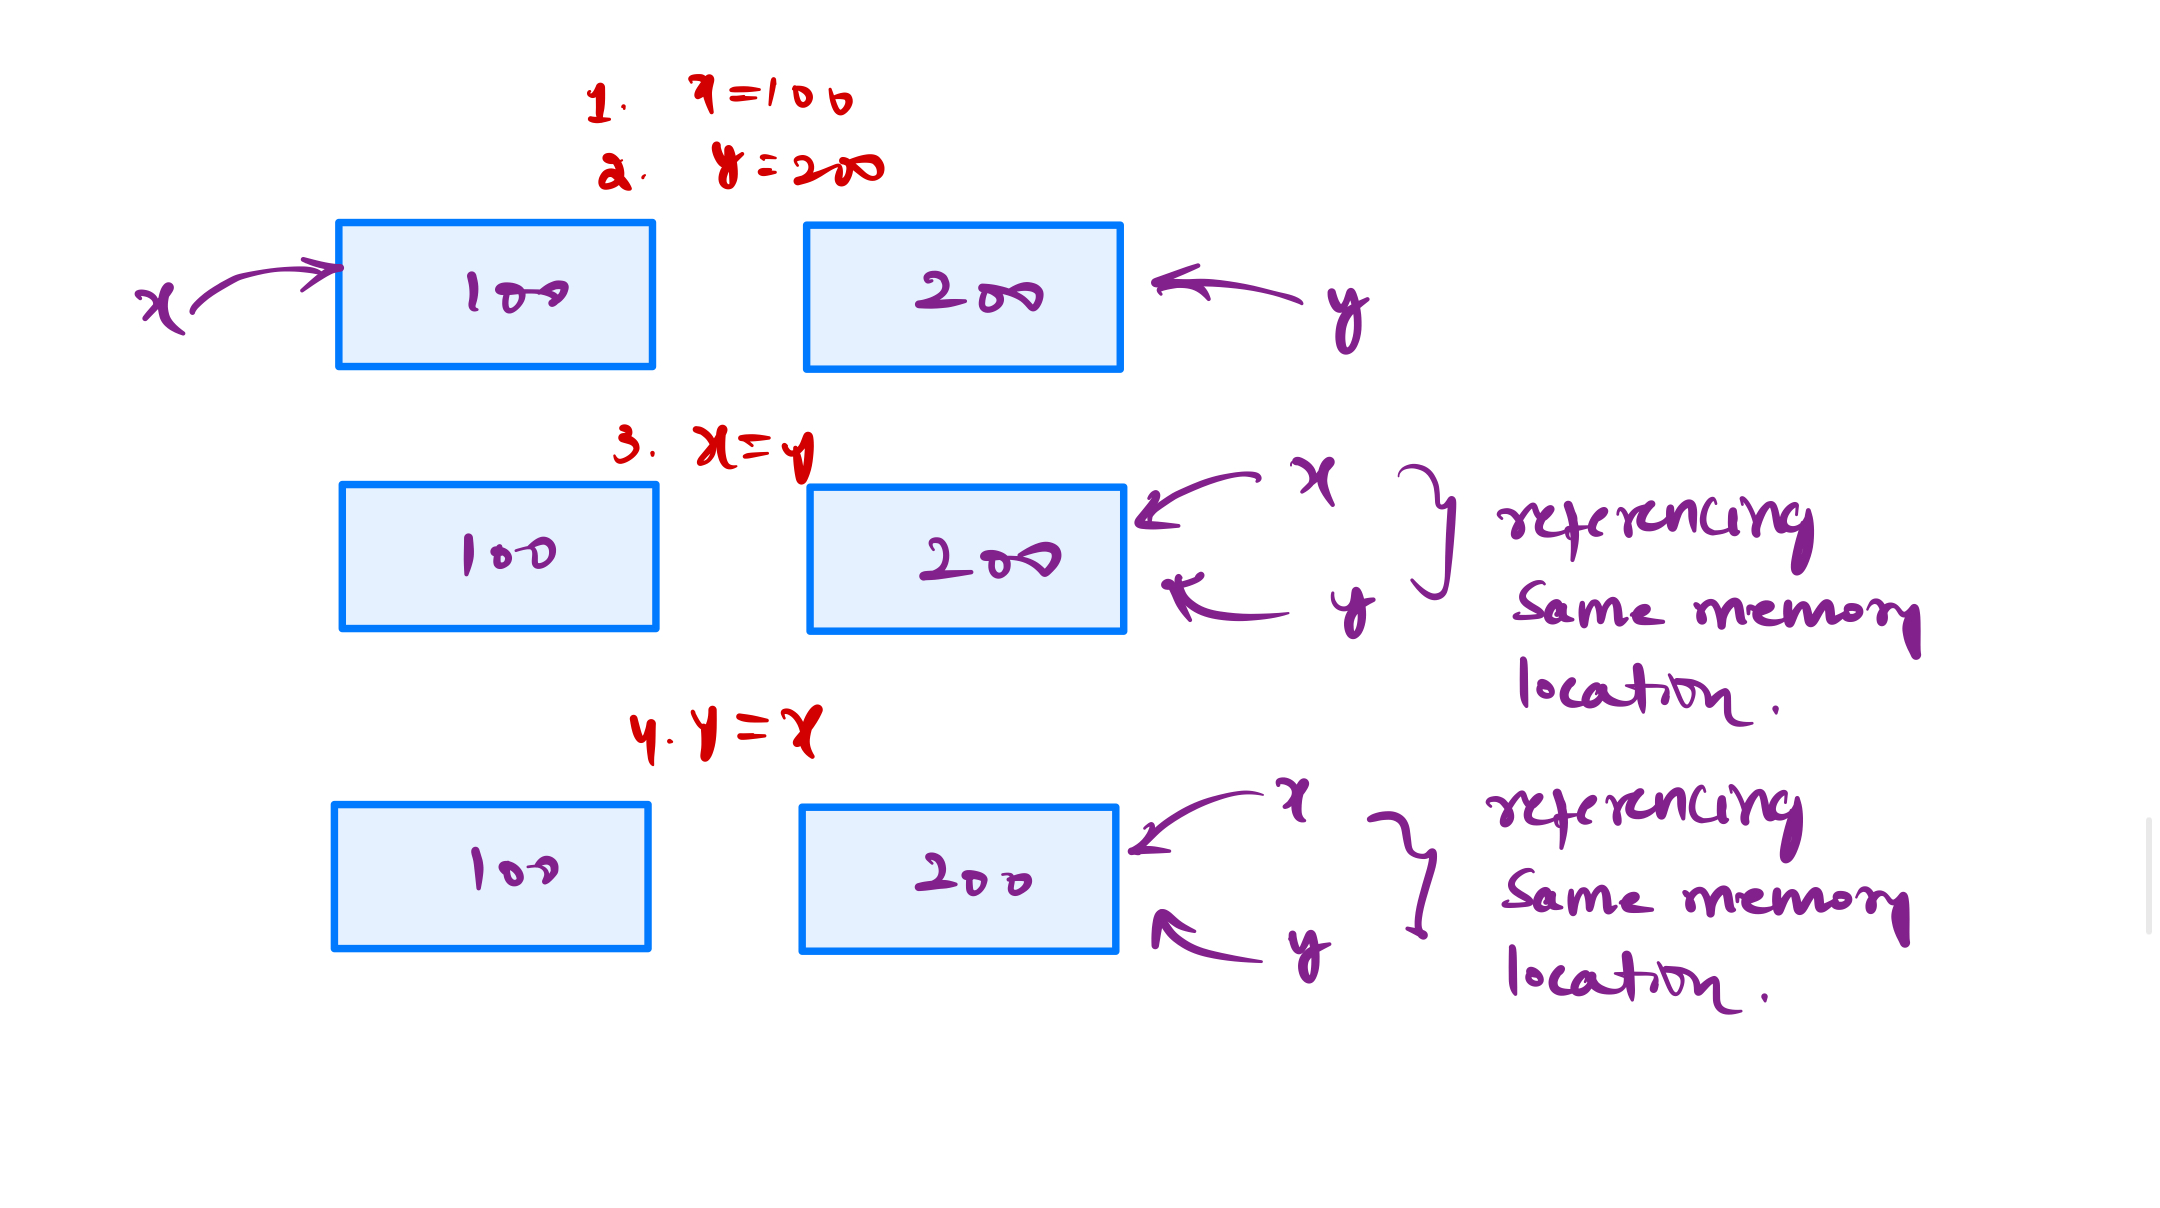 1. x=100
2. y=200
x 100 200 y
3. x=y
100 200 x y referencing
same memory
location.
4. y=x
100 200 x y referencing
same memory
location.